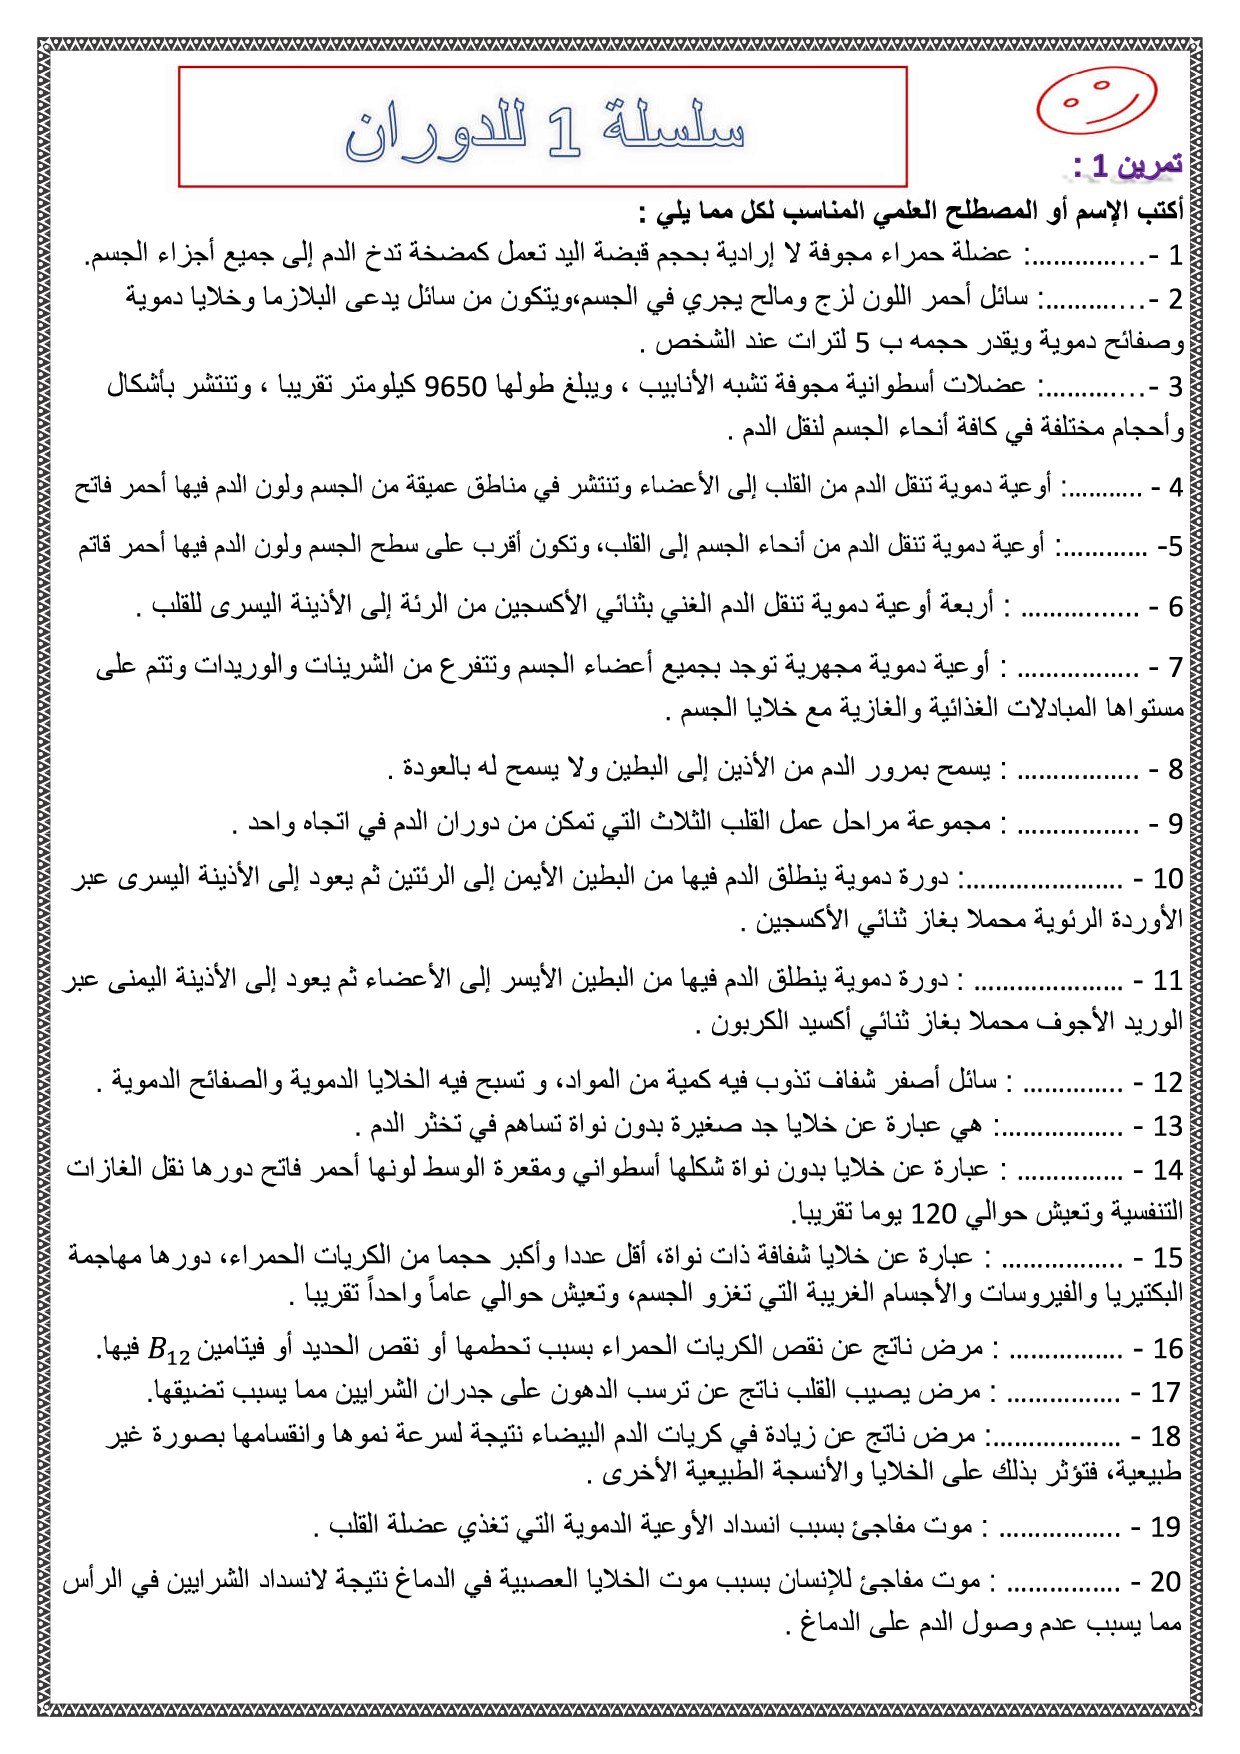 سلسلة 1 للدوران
تمرين 1 :
أكتب الإسم أو المصطلح العلمي المناسب لكل مما يلي :
1 -...............: عضلة حمراء مجوفة لا إرادية بحجم قبضة اليد تعمل كمضخة تدخ الدم إلى جميع أجزاء الجسم.
2 -..............: سائل أحمر اللون لزج ومالح يجري في الجسم،ويتكون من سائل يدعى البلازما وخلايا دموية
وصفائح دموية ويقدر حجمه ب 5 لترات عند الشخص .
3 -..............: عضلات أسطوانية مجوفة تشبه الأنابيب ، ويبلغ طولها 9650 كيلومتر تقريبا ، وتنتشر بأشكال
وأحجام مختلفة في كافة أنحاء الجسم لنقل الدم .
4 - ...........: أوعية دموية تنقل الدم من القلب إلى الأعضاء وتنتشر في مناطق عميقة من الجسم ولون الدم فيها أحمر فاتح
5- ............: أوعية دموية تنقل الدم من أنحاء الجسم إلى القلب، وتكون أقرب على سطح الجسم ولون الدم فيها أحمر قاتم
6 - ................ : أربعة أوعية دموية تنقل الدم الغني بثنائي الأكسجين من الرئة إلى الأذينة اليسرى للقلب .
7 - ................. : أوعية دموية مجهرية توجد بجميع أعضاء الجسم وتتفرع من الشرينات والوريدات وتتم على
مستواها المبادلات الغذائية والغازية مع خلايا الجسم .
8 - ................. : يسمح بمرور الدم من الأذين إلى البطين ولا يسمح له بالعودة .
9 - ................. : مجموعة مراحل عمل القلب الثلاث التي تمكن من دوران الدم في اتجاه واحد .
10 - ......................: دورة دموية ينطلق الدم فيها من البطين الأيمن إلى الرئتين ثم يعود إلى الأذينة اليسرى عبر
الأوردة الرئوية محملا بغاز ثنائي الأكسجين .
11 - ..................... : دورة دموية ينطلق الدم فيها من البطين الأيسر إلى الأعضاء ثم يعود إلى الأذينة اليمنى عبر
الوريد الأجوف محملا بغاز ثنائي أكسيد الكربون .
12 - .............. : سائل أصفر شفاف تذوب فيه كمية من المواد، و تسبح فيه الخلايا الدموية والصفائح الدموية .
13 - .................: هي عبارة عن خلايا جد صغيرة بدون نواة تساهم في تخثر الدم .
14 - ............... : عبارة عن خلايا بدون نواة شكلها أسطواني ومقعرة الوسط لونها أحمر فاتح دورها نقل الغازات
التنفسية وتعيش حوالي 120 يوما تقريبا.
15 - ................. : عبارة عن خلايا شفافة ذات نواة، أقل عددا وأكبر حجما من الكريات الحمراء، دورها مهاجمة
البكتيريا والفيروسات والأجسام الغريبة التي تغزو الجسم، وتعيش حوالي عاماً واحداً تقريبا .
16 - ................ : مرض ناتج عن نقص الكريات الحمراء بسبب تحطمها أو نقص الحديد أو فيتامين B₁₂ فيها.
17 - ................ : مرض يصيب القلب ناتج عن ترسب الدهون على جدران الشرايين مما يسبب تضيقها.
18 - ..................: مرض ناتج عن زيادة في كريات الدم البيضاء نتيجة لسرعة نموها وانقسامها بصورة غير
طبيعية، فتؤثر بذلك على الخلايا والأنسجة الطبيعية الأخرى .
19 - ................. : موت مفاجئ بسبب انسداد الأوعية الدموية التي تغذي عضلة القلب .
20 - ................ : موت مفاجئ للإنسان بسبب موت الخلايا العصبية في الدماغ نتيجة لانسداد الشرايين في الرأس
مما يسبب عدم وصول الدم على الدماغ .